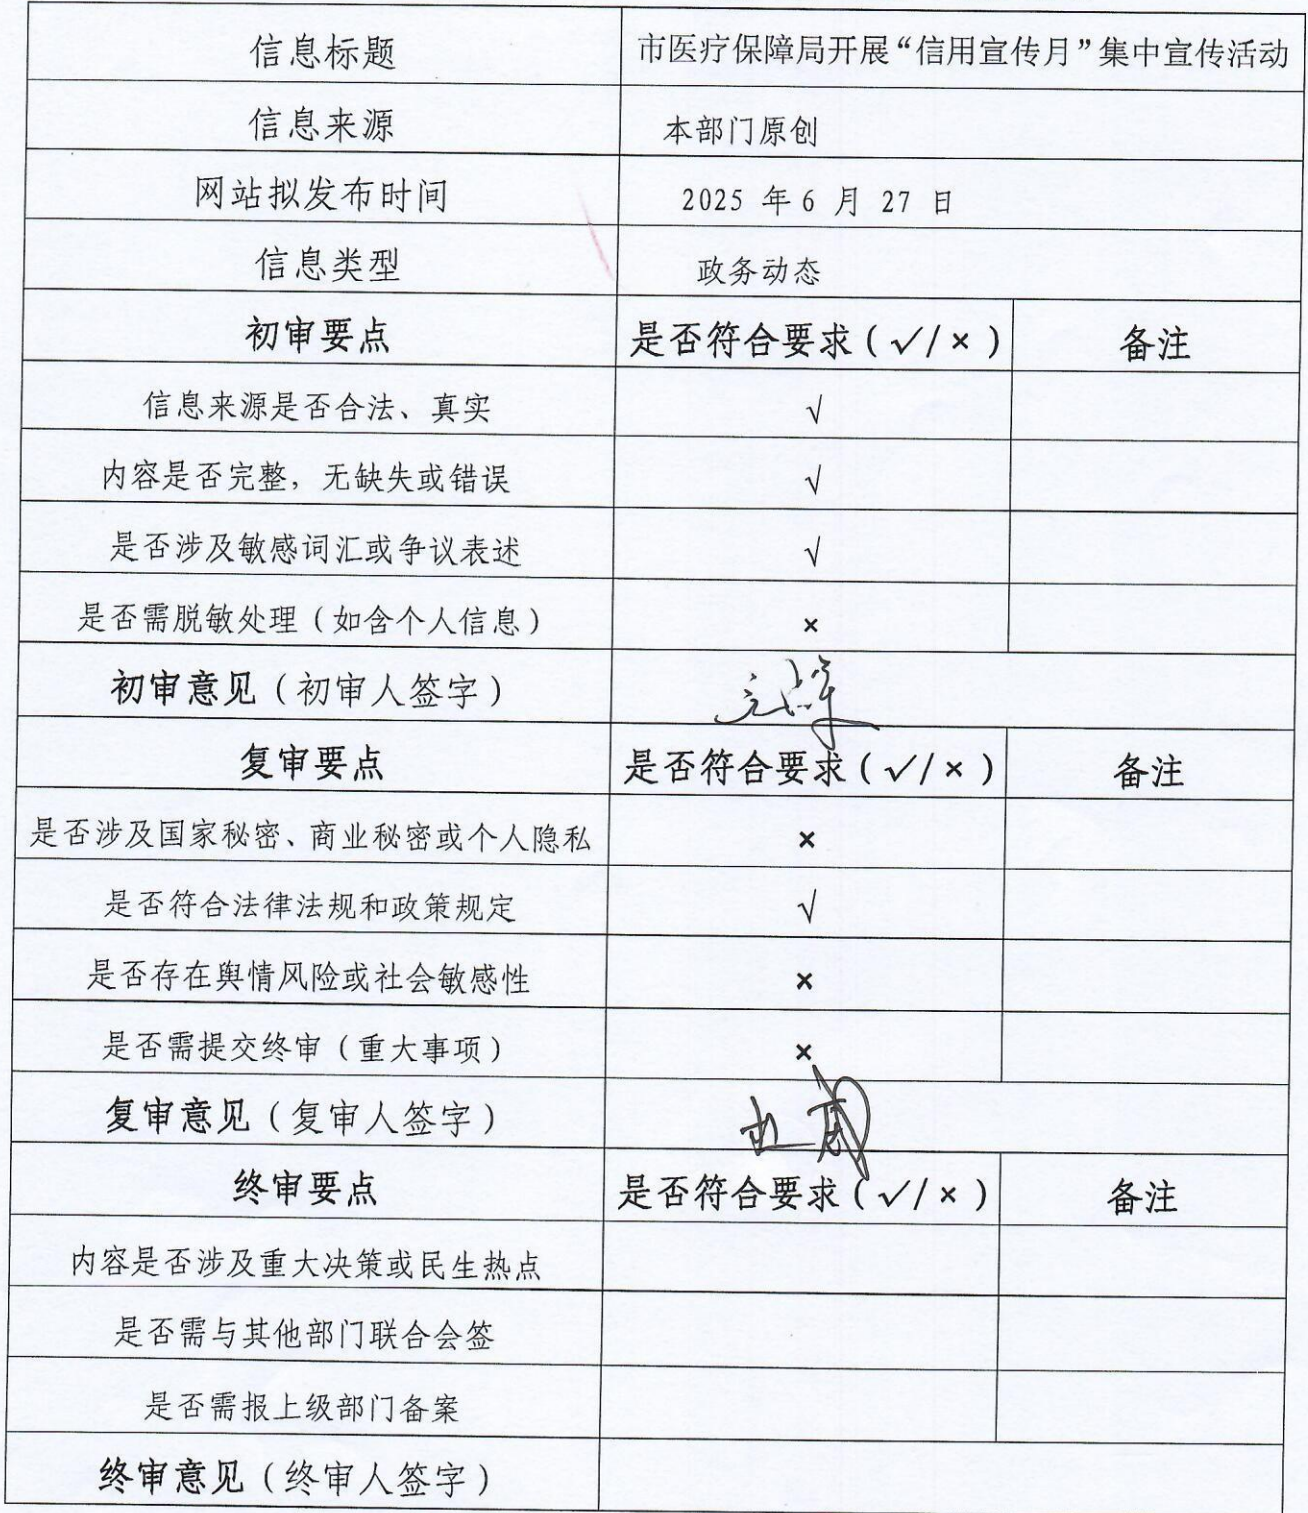 信息标题 市医疗保障局开展“信用宣传月”集中宣传活动
信息来源 本部门原创
网站拟发布时间 2025 年 6 月 27 日
信息类型 政务动态
初审要点 是否符合要求（√/×） 备注
信息来源是否合法、真实 √
内容是否完整，无缺失或错误 √
是否涉及敏感词汇或争议表述 √
是否需脱敏处理（如含个人信息） ×
初审意见（初审人签字）
复审要点 是否符合要求（√/×） 备注
是否涉及国家秘密、商业秘密或个人隐私 ×
是否符合法律法规和政策规定 √
是否存在舆情风险或社会敏感性 ×
是否需提交终审（重大事项） ×
复审意见（复审人签字）
终审要点 是否符合要求（√/×） 备注
内容是否涉及重大决策或民生热点
是否需与其他部门联合会签
是否需报上级部门备案
终审意见（终审人签字）